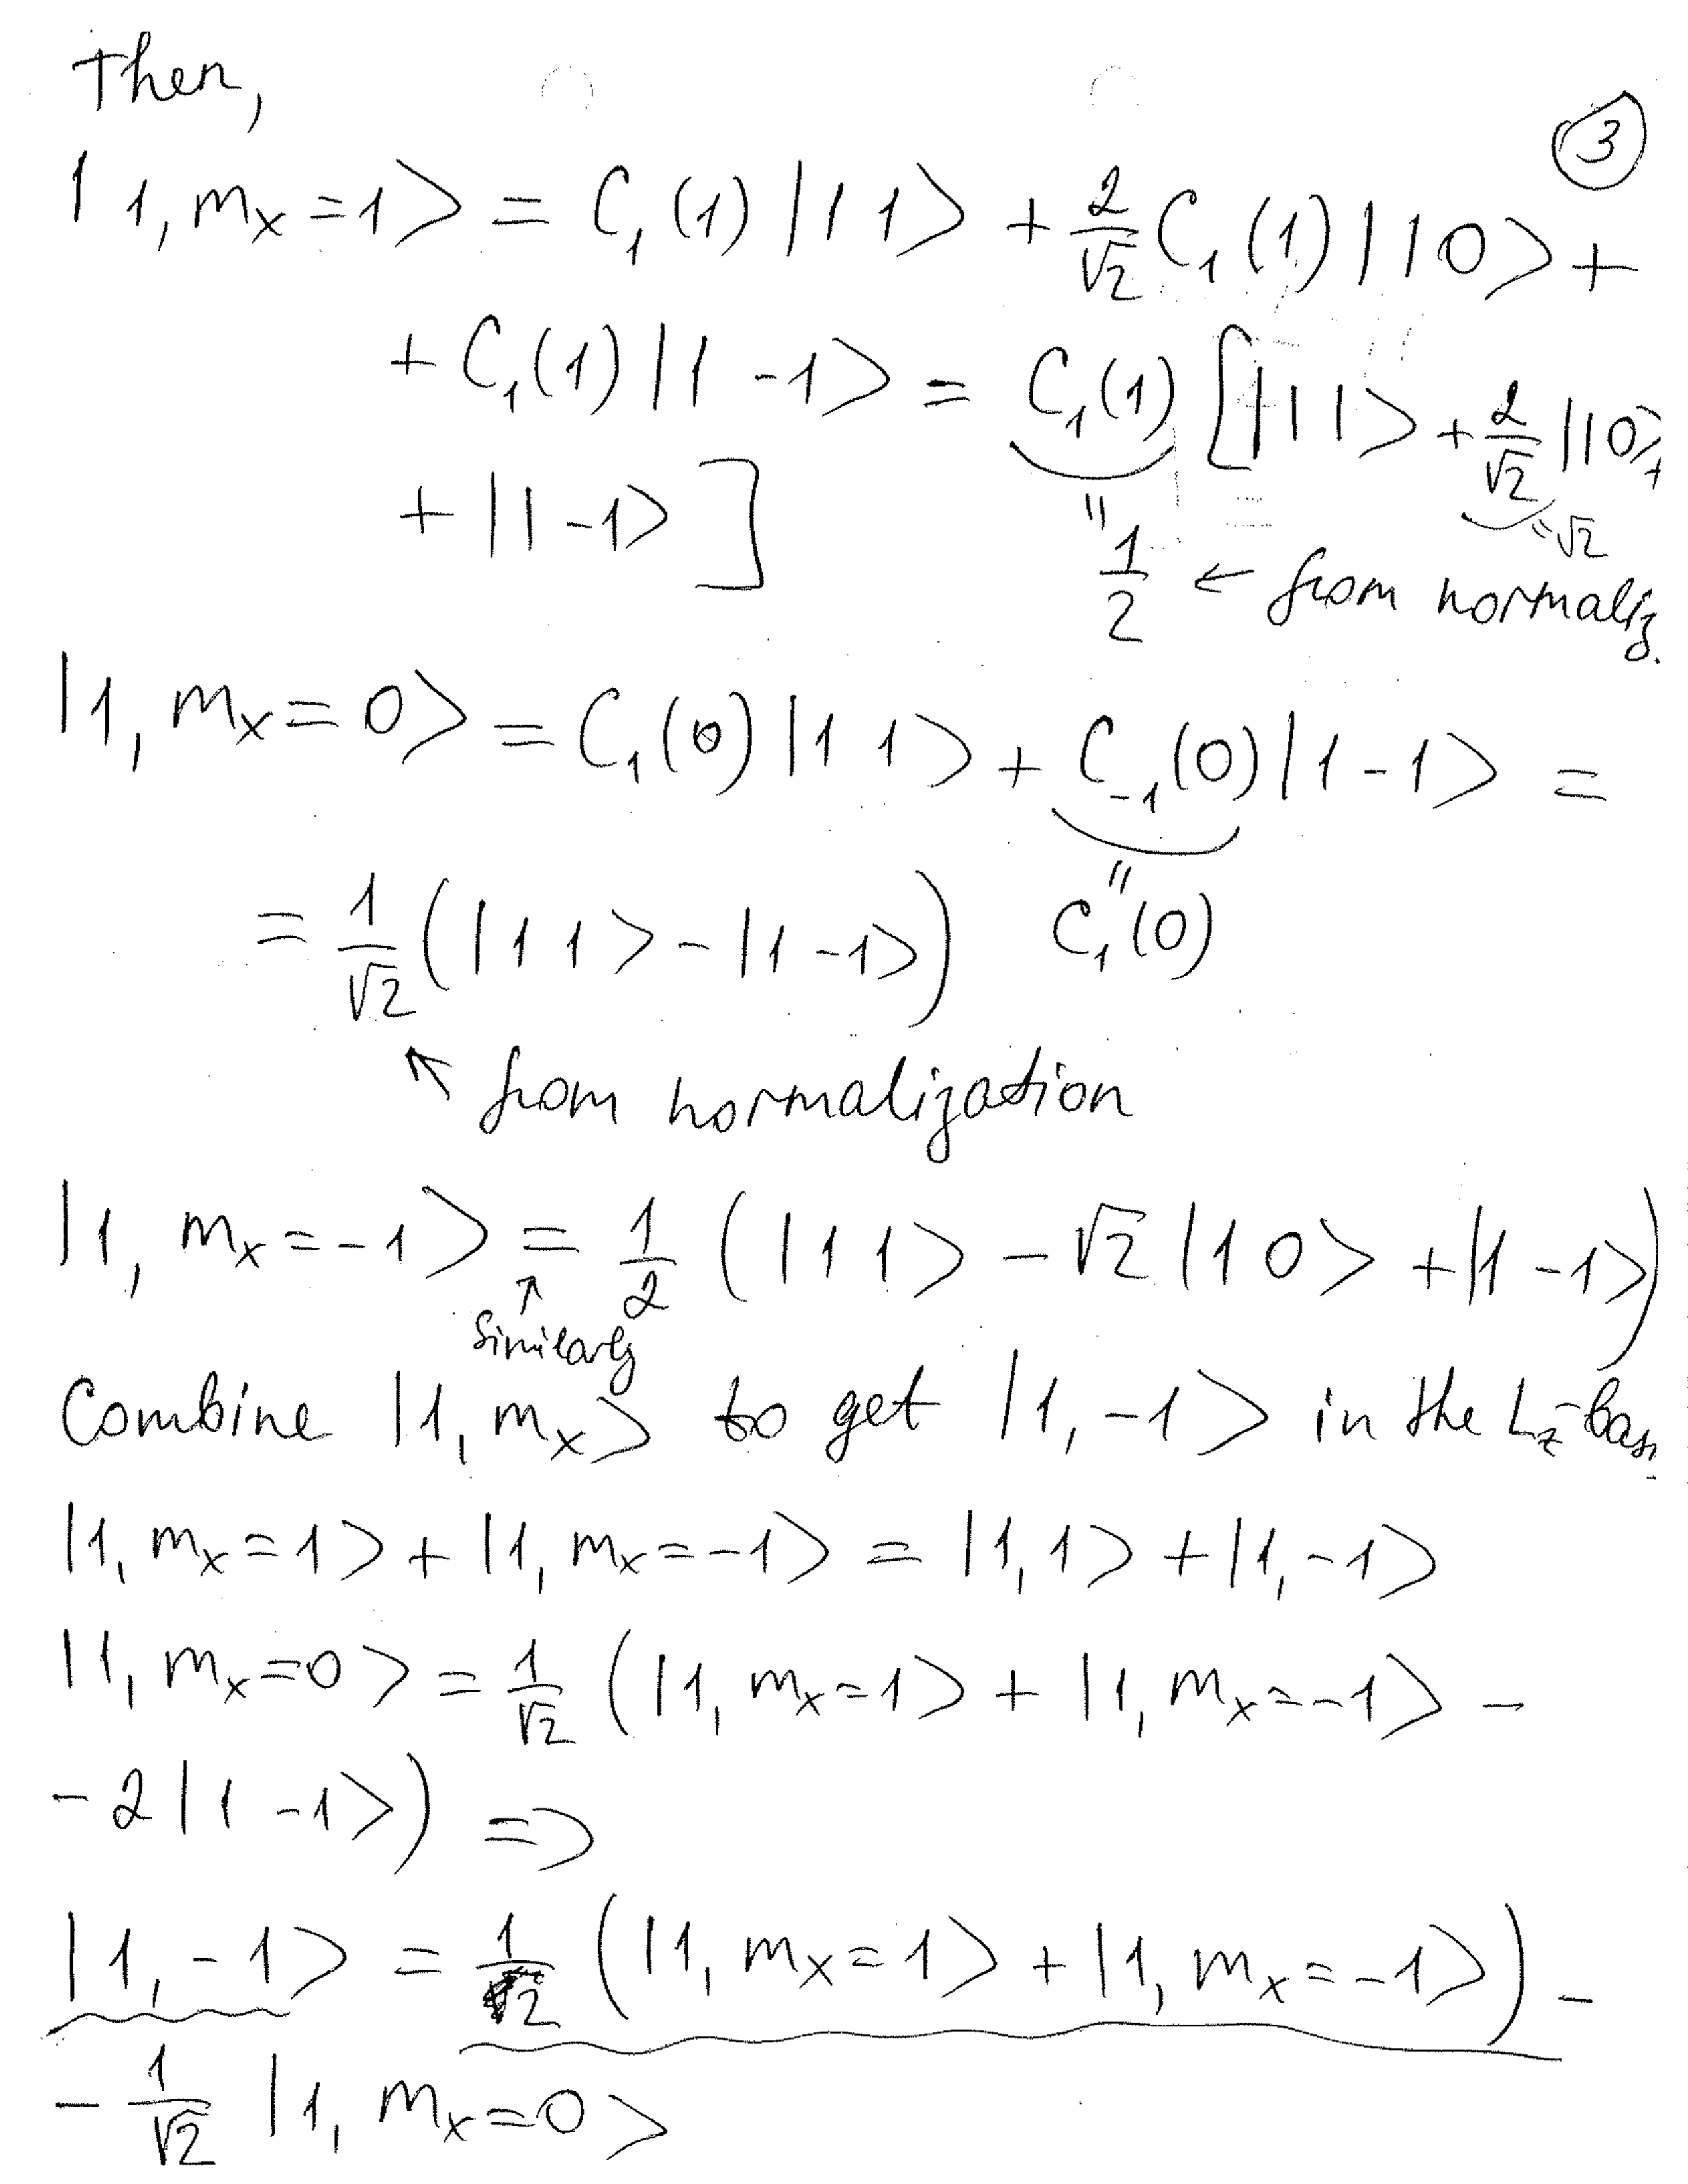 Then,
③
|1, mₓ=1> = C₁(1)|11> + 2/√2 C₁(1)|10> +
+ C₁(1)|1 -1> = C₁(1) [|11> + 2/√2 |10> +
= √2
+ |1 -1>]
" 1/2 ← from normaliz.
|1, mₓ=0> = C₁(0)|1 1> + C₋₁(0)|1 -1> =
= 1/√2 (|1 1> - |1 -1>) " C₁(0)
↖ from normalization
|1, mₓ=-1> = 1/2 (|1 1> - √2 |1 0> + |1 -1>)
↑ similarly
Combine |1, mₓ> to get |1, -1> in the L_z-bas
|1, mₓ=1> + |1, mₓ=-1> = |1,1> + |1,-1>
|1, mₓ=0> = 1/√2 (|1, mₓ=1> + |1, mₓ=-1> -
- 2|1 -1>) =>
|1, -1> = 1/2 (|1, mₓ=1> + |1, mₓ=-1>) -
- 1/√2 |1, mₓ=0>